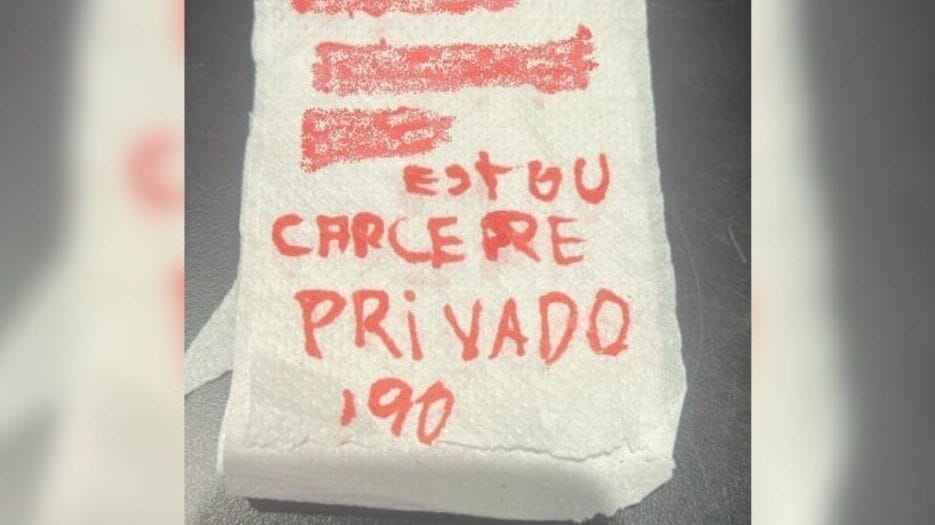 ESTOU
CARCERE
PRIVADO
190